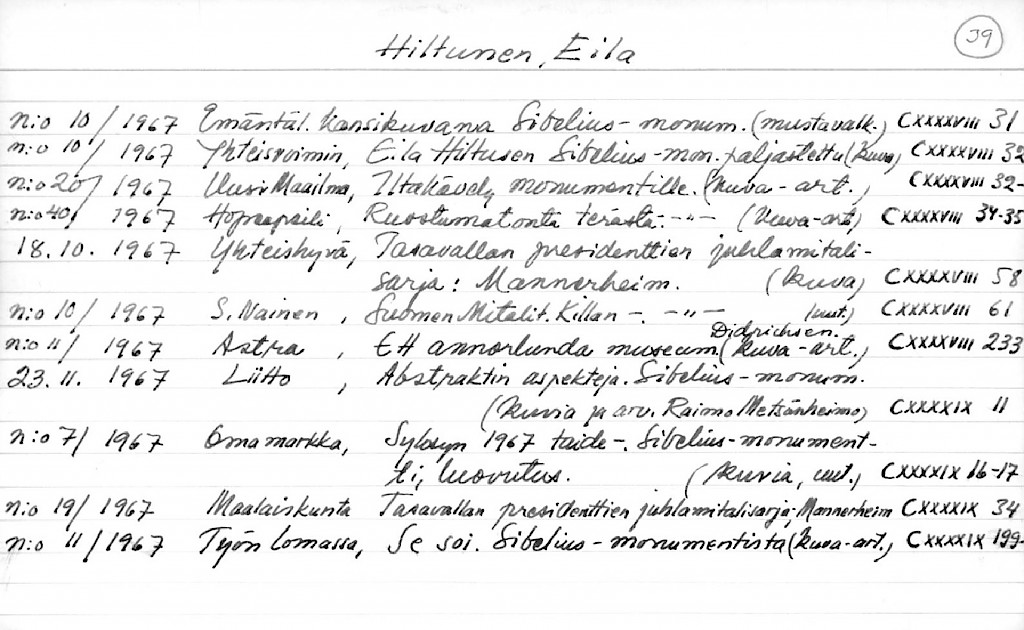 39
Hiltunen, Eila
n:o 10/1967 Emäntäl. kansikuvana Sibelius-monum. (mustavalk.) CXXXXVIII 31
n:o 10/1967 Yhteisvoimin, Eila Hiltusen Sibelius-mon. paljastettu (kuva) CXXXXVIII 32
n:o 20/1967 Uusi Maailma, Iltakävely monumentille. (kuva-art.) CXXXXVIII 32-
n:o 40/ 1967 Hopeapeili, Ruostumatonta terästä. -"- (kuva-art) CXXXXVIII 34-35
18.10. 1967 Yhteishyvä, Tasavallan presidenttien juhlamitali-
sarja: Mannerheim. (kuva) CXXXXVIII 58
n:o 10/1967 S. Nainen, Suomen Mitalit. Killan -. -"- (uut.) CXXXXVIII 61
Didrichsen.
n:o 11/ 1967 Astra, EH annorlunda museum (kuva-art.) CXXXXVIII 233
23.11. 1967 Liitto, Abstraktin aspekteja. Sibelius-monum.
(kuvia ja arv. Raimo Metsänheimo) CXXXXIX 11
n:o 7/ 1967 Omamarkka, Syksyn 1967 taide-. Sibelius-monument-
ti, luovutus. (kuvia, uut.) CXXXXIX 16-17
n:o 19/ 1967 Maalaiskunta Tasavallan presidenttien juhlamitalisarja; Mannerheim CXXXXIX 34
n:o 11/1967 Työn Lomassa, Se soi. Sibelius-monumentista (kuva-art.) CXXXXIX 199-